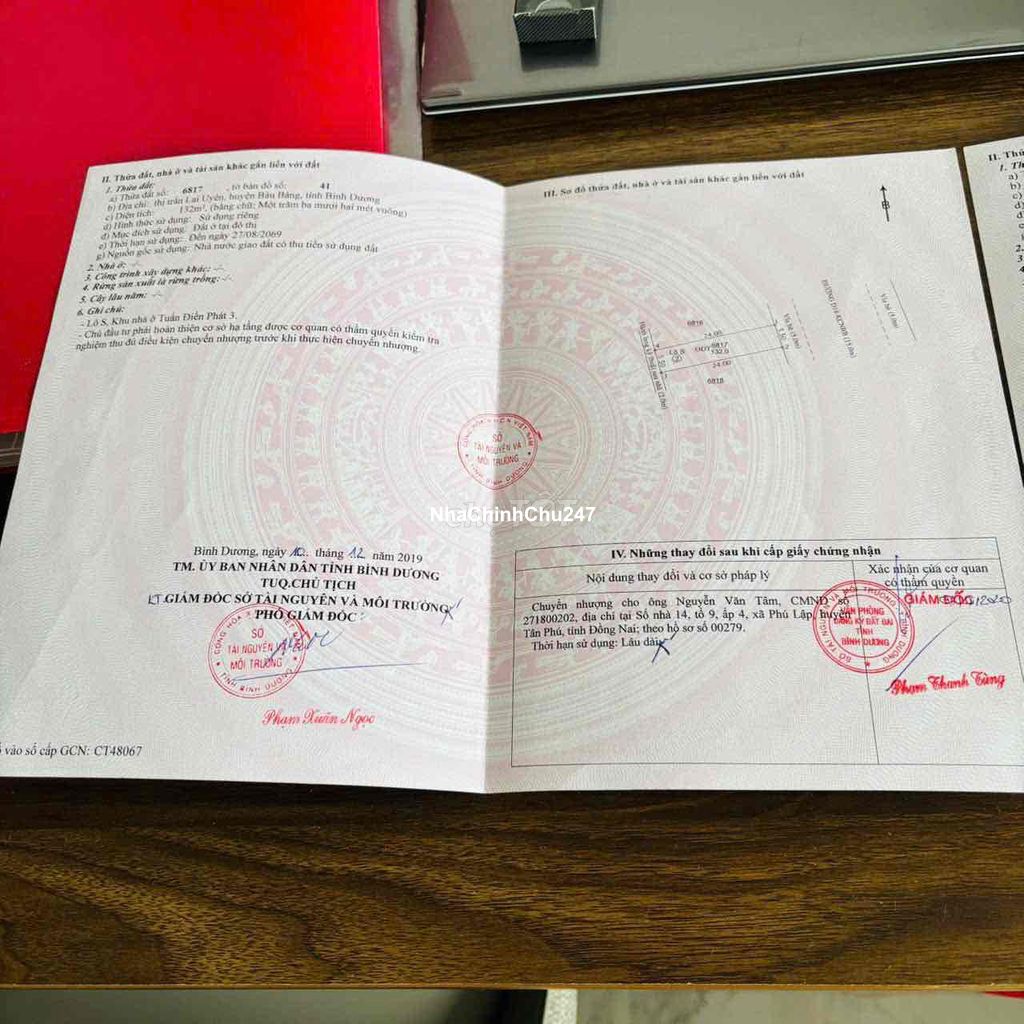 II. Thửa đất, nhà ở và tài sản khác gắn liền với đất
1. Thửa đất:
a) Thửa đất số: 6817 , tờ bản đồ số: 41
b) Địa chỉ: thị trấn Lai Uyên, huyện Bàu Bàng, tỉnh Bình Dương
c) Diện tích: 132m², (bằng chữ: Một trăm ba mươi hai mét vuông)
d) Hình thức sử dụng: Sử dụng riêng
đ) Mục đích sử dụng: Đất ở tại đô thị
e) Thời hạn sử dụng: Đến ngày 27/08/2069
g) Nguồn gốc sử dụng: Nhà nước giao đất có thu tiền sử dụng đất
2. Nhà ở: -/-
3. Công trình xây dựng khác: -/-
4. Rừng sản xuất là rừng trồng: -/-
5. Cây lâu năm: -/-
6. Ghi chú:
- Lô S, Khu nhà ở Tuấn Điền Phát 3.
- Chủ đầu tư phải hoàn thiện cơ sở hạ tầng được cơ quan có thẩm quyền kiểm tra
nghiệm thu đủ điều kiện chuyển nhượng trước khi thực hiện chuyển nhượng.
SỞ
TÀI NGUYÊN VÀ
MÔI TRƯỜNG
TỈNH BÌNH DƯƠNG
Bình Dương, ngày 10 tháng 12 năm 2019
TM. ỦY BAN NHÂN DÂN TỈNH BÌNH DƯƠNG
TUQ.CHỦ TỊCH
KT.GIÁM ĐỐC SỞ TÀI NGUYÊN VÀ MÔI TRƯỜNG
PHÓ GIÁM ĐỐC
SỞ
TÀI NGUYÊN VÀ
MÔI TRƯỜNG
TỈNH BÌNH DƯƠNG
Phạm Xuân Ngọc
vào sổ cấp GCN: CT48067
III. Sơ đồ thửa đất, nhà ở và tài sản khác gắn liền với đất
B
6816
24.00
Lô S
6817
132.0
24.00
6818
Vỉa hè (3.0m)
Vỉa hè (3.0m)
NhaChinhChu247
IV. Những thay đổi sau khi cấp giấy chứng nhận
Nội dung thay đổi và cơ sở pháp lý
Xác nhận của cơ quan
có thẩm quyền
Chuyển nhượng cho ông Nguyễn Văn Tâm, CMND số
271800202, địa chỉ tại Số nhà 14, tổ 9, ấp 4, xã Phú Lập, huyện
Tân Phú, tỉnh Đồng Nai; theo hồ sơ số 00279.
Thời hạn sử dụng: Lâu dài
GIÁM ĐỐC
VĂN PHÒNG
ĐĂNG KÝ ĐẤT ĐAI
TỈNH
BÌNH DƯƠNG
Phạm Thanh Tùng
II. Thử
1. Th
a)
b)